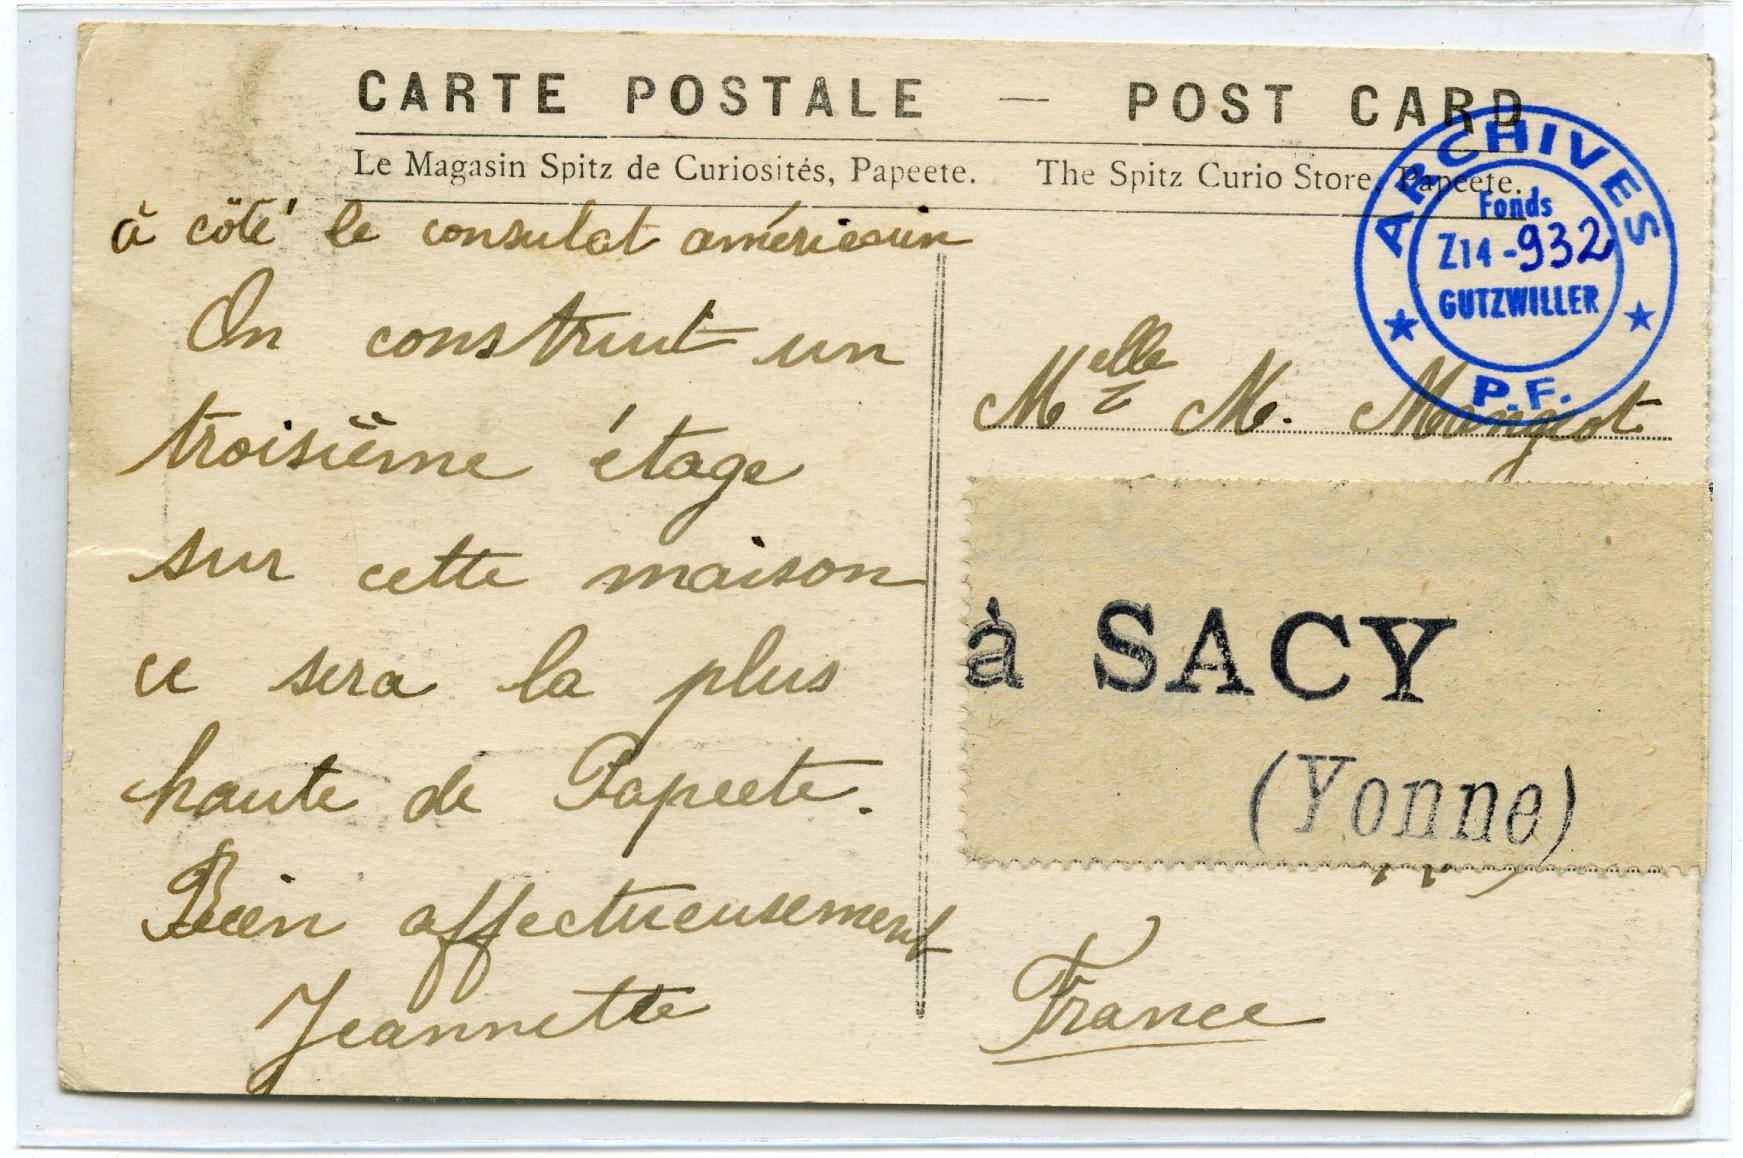 CARTE POSTALE — POST CARD
Le Magasin Spitz de Curiosités, Papeete. The Spitz Curio Store, Papeete.
à côté le consulat américain
On construit un
troisième étage
sur cette maison
ce sera la plus
haute de Papeete.
Bien affectueusement
Jeannette
ARCHIVES
Fonds
Z14-932
GUTZWILLER
P.F.
Melle M. Mangeot
à SACY
(Yonne)
France